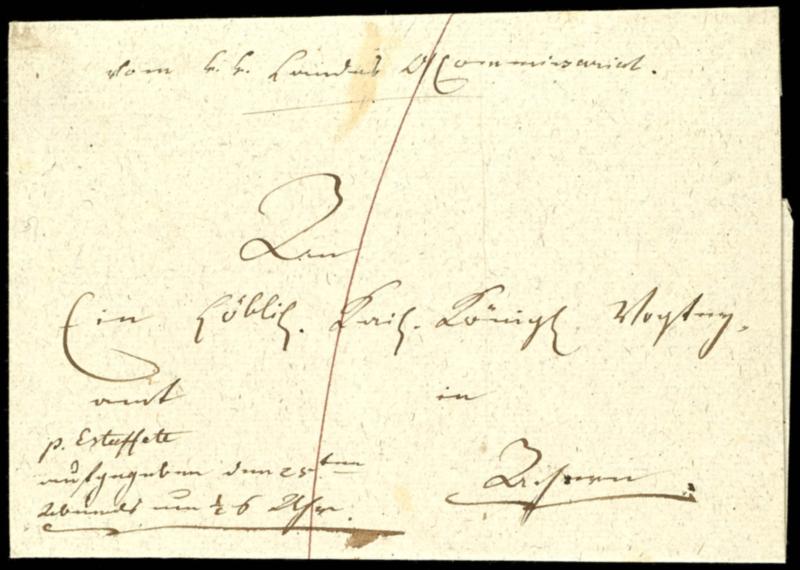 vom k. k. Landes Commissariat.
An
Ein Löblich. Kais. Königl. Vogtey-
amt in
p. Estaffete
aufgegeben den 25ten
Abends um ½ 6 Uhr.